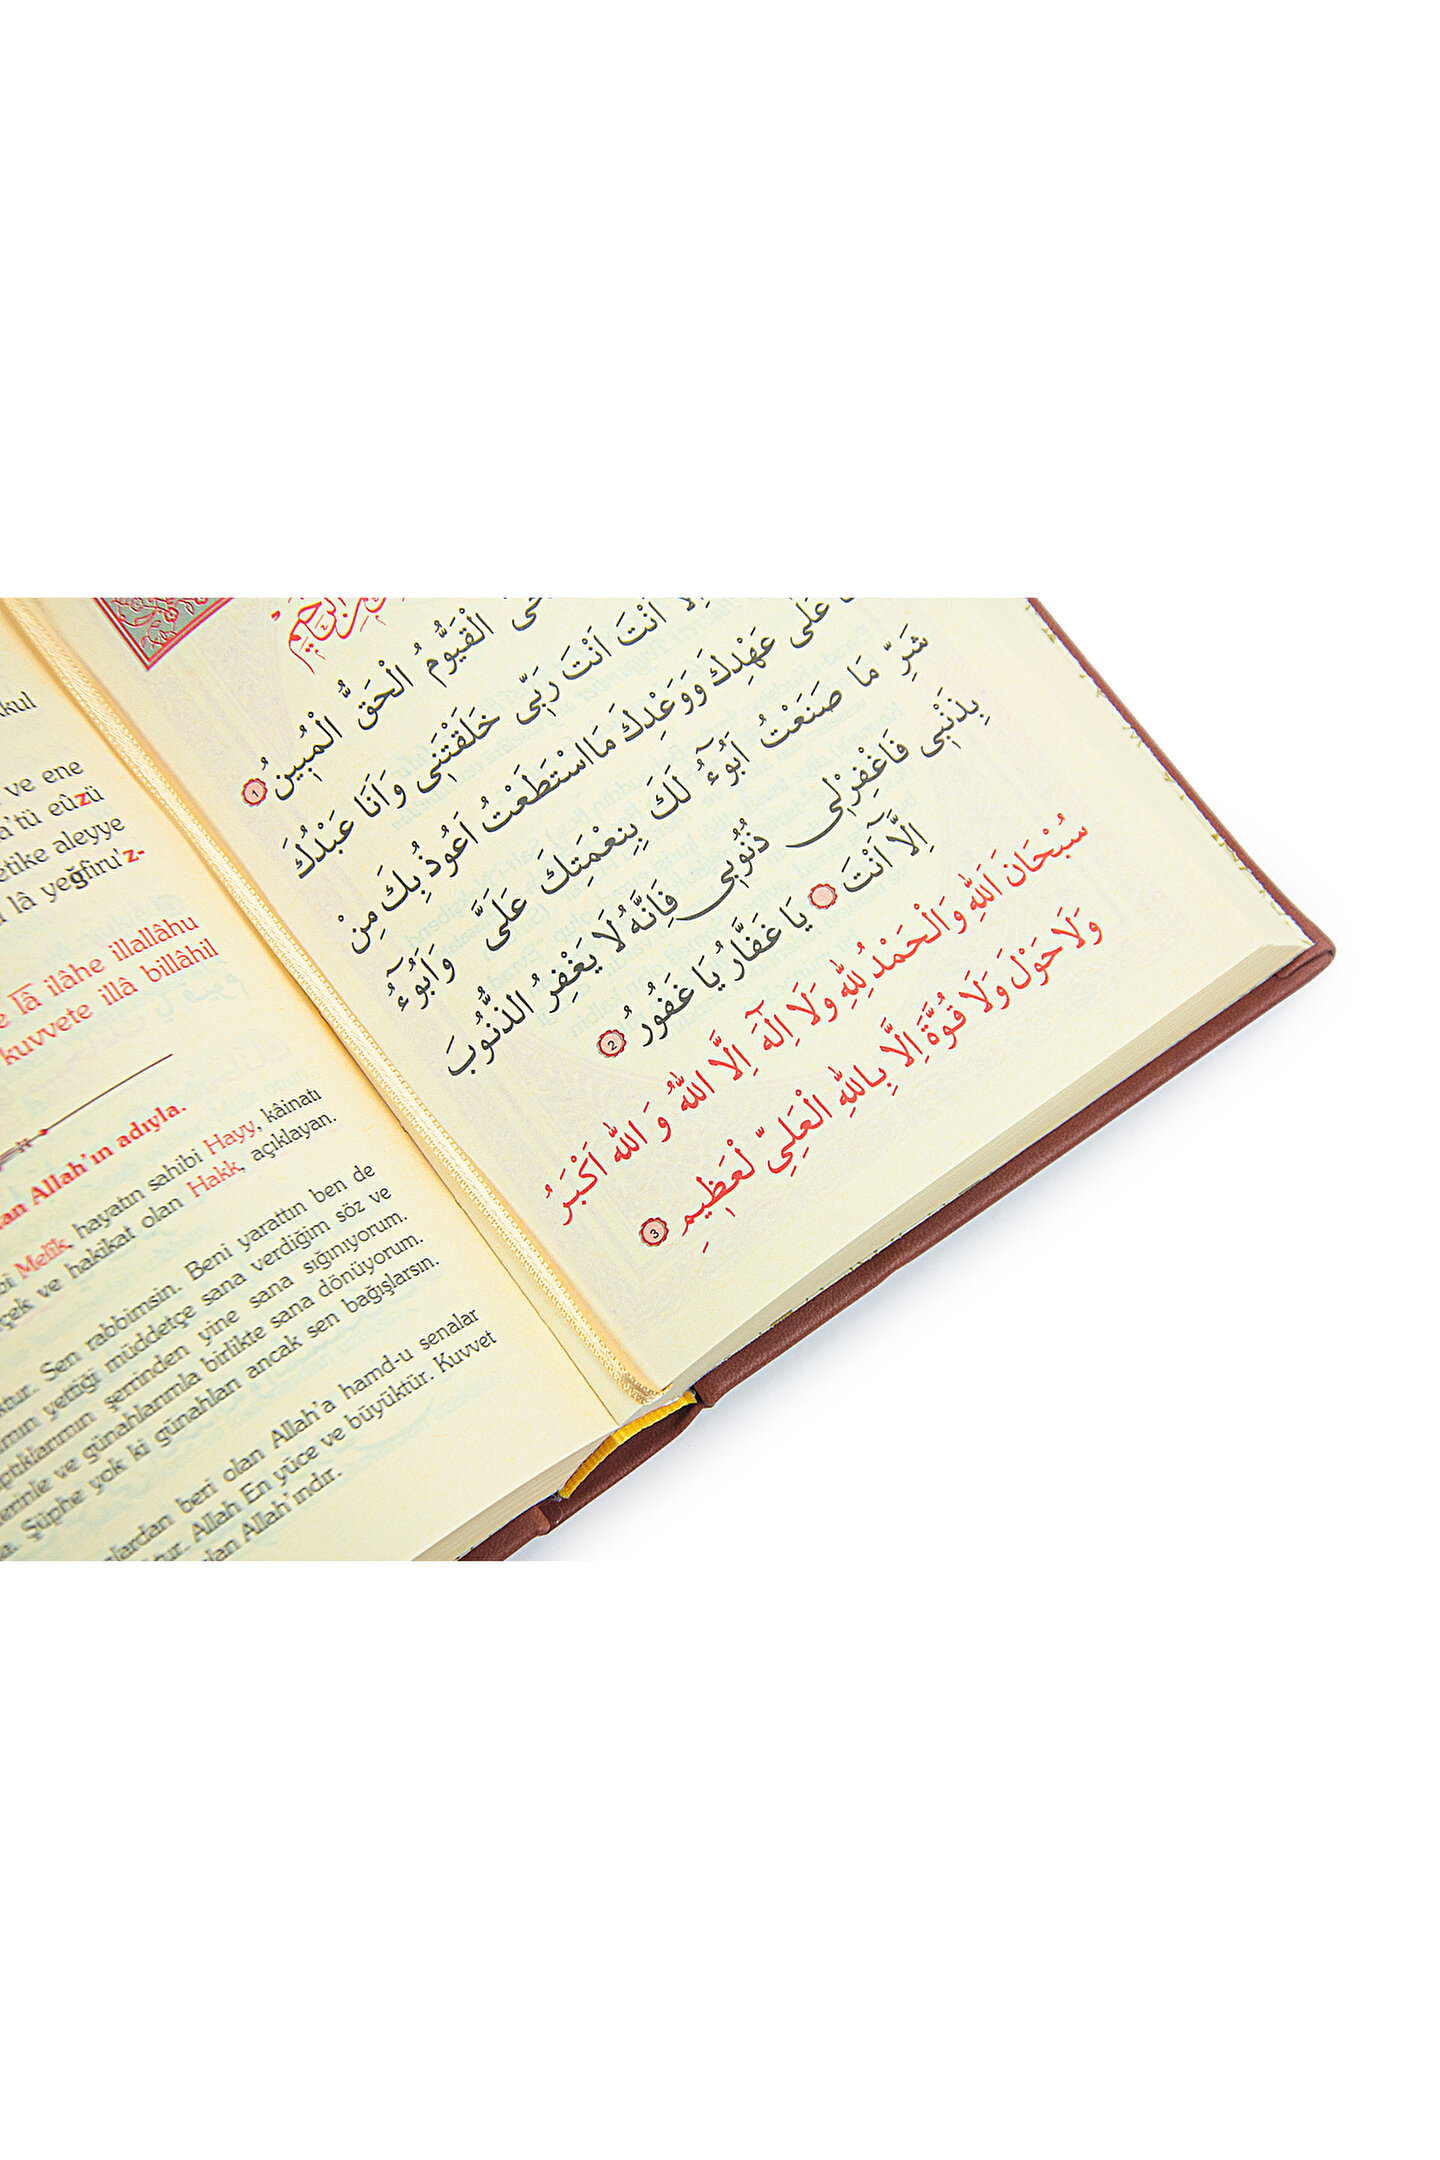 kkul
ve ene
a'tü eûzü
etike aleyye
lâ yeğfiru'z-
lâ ilâhe illallâhu
kuvvete illâ billâhil
Allah'ın adıyla.
Melik, hayatın sahibi Hayy, kâinatı
ve hakikat olan Hakk, açıklayan.
Sen rabbimsin. Beni yarattın ben de
yettiği müddetçe sana verdiğim söz ve
şerrinden yine sana sığınıyorum.
ve günahlarımla birlikte sana dönüyorum.
Şüphe yok ki günahları ancak sen bağışlarsın.
beri olan Allah'a hamd-u senalar
Allah En yüce ve büyüktür. Kuvvet
Allah'ındır.
الْقَيُّومُ الْحَقُّ الْمُبِينُ 1
اِلَّا اَنْتَ اَنْتَ رَبِّى خَلَقْتَنِى وَاَنَا عَبْدُكَ
عَلٰى عَهْدِكَ وَوَعْدِكَ مَا اسْتَطَعْتُ اَعُوذُ بِكَ مِنْ
شَرِّ مَا صَنَعْتُ اَبُوٓءُ لَكَ بِنِعْمَتِكَ عَلَىَّ وَاَبُوٓءُ
بِذَنْبِى فَاغْفِرْلِى ذُنُوبِى فَاِنَّهُ لَا يَغْفِرُ الذُّنُوبَ
اِلَّٓا اَنْتَ يَا غَفَّارُ يَا غَفُورُ 2
سُبْحَانَ اَللّٰهِ وَالْحَمْدُ لِلّٰهِ وَلَا اِلٰهَ اِلَّا اللّٰهُ وَ اللّٰهُ اَكْبَرُ
وَلَا حَوْلَ وَلَا قُوَّةَ اِلَّا بِاللّٰهِ الْعَلِىِّ لْعَظِيمِ 3